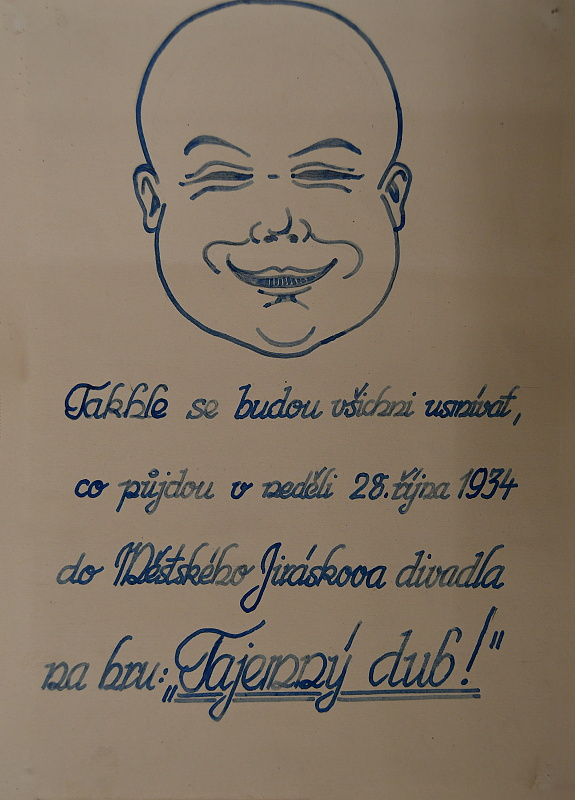 Takhle se budou všichni usmívat,
co půjdou v neděli 28. října 1934
do Městského Jiráskova divadla
na hru: „Tajemný dub!"